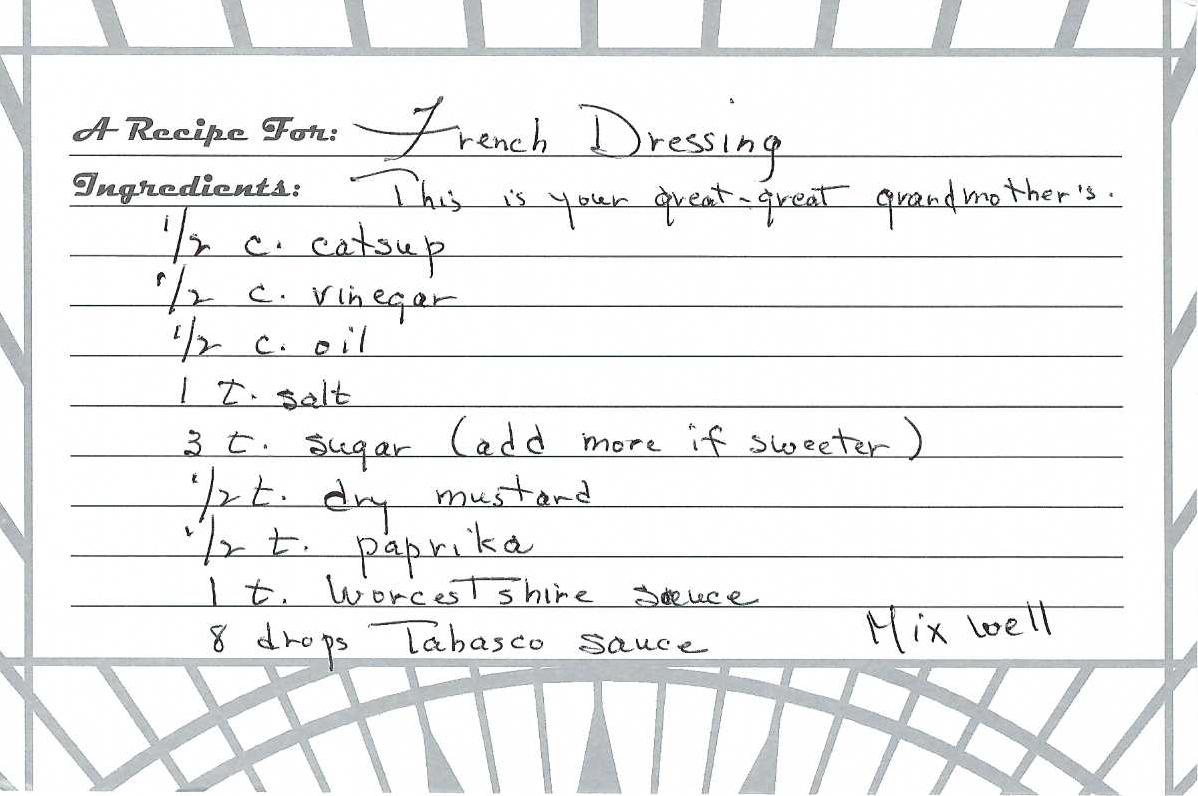 A Recipe For: French Dressing
Ingredients: This is your great-great grandmother's.
1/2 c. catsup
1/2 c. vinegar
1/2 c. oil
1 t. salt
3 t. sugar (add more if sweeter)
1/2 t. dry mustard
1/2 t. paprika
1 t. Worcestshire sauce
8 drops Tabasco sauce Mix well